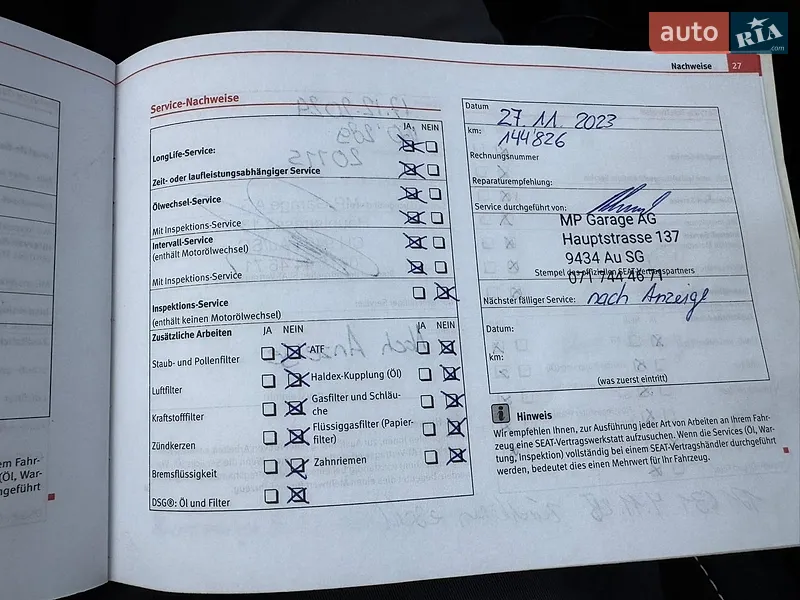 auto RIA.com
Nachweise 27
Service-Nachweise
JA NEIN
LongLife-Service:
Zeit- oder laufleistungsabhängiger Service
Ölwechsel-Service
Mit Inspektions-Service
Intervall-Service
(enthält Motorölwechsel)
Mit Inspektions-Service
Inspektions-Service
(enthält keinen Motorölwechsel)
Zusätzliche Arbeiten JA NEIN JA NEIN
Staub- und Pollenfilter ATF
Luftfilter Haldex-Kupplung (Öl)
Kraftstofffilter Gasfilter und Schläu-
che
Zündkerzen Flüssiggasfilter (Papier-
filter)
Bremsflüssigkeit Zahnriemen
DSG®: Öl und Filter
Datum 27.11.2023
km: 144'826
Rechnungsnummer
Reparaturempfehlung:
Service durchgeführt von:
MP Garage AG
Hauptstrasse 137
9434 Au SG
Stempel des offiziellen SEAT-Vertragspartners
071 744 46 71
Nächster fälliger Service: nach Anzeige
Datum:
km:
(was zuerst eintritt)
Hinweis
Wir empfehlen Ihnen, zur Ausführung jeder Art von Arbeiten an Ihrem Fahr-
zeug eine SEAT-Vertragswerkstatt aufzusuchen. Wenn die Services (Öl, War-
tung, Inspektion) vollständig bei einem SEAT-Vertragshändler durchgeführt
werden, bedeutet dies einen Mehrwert für Ihr Fahrzeug.
em Fahr-
(Öl, War-
ngeführt